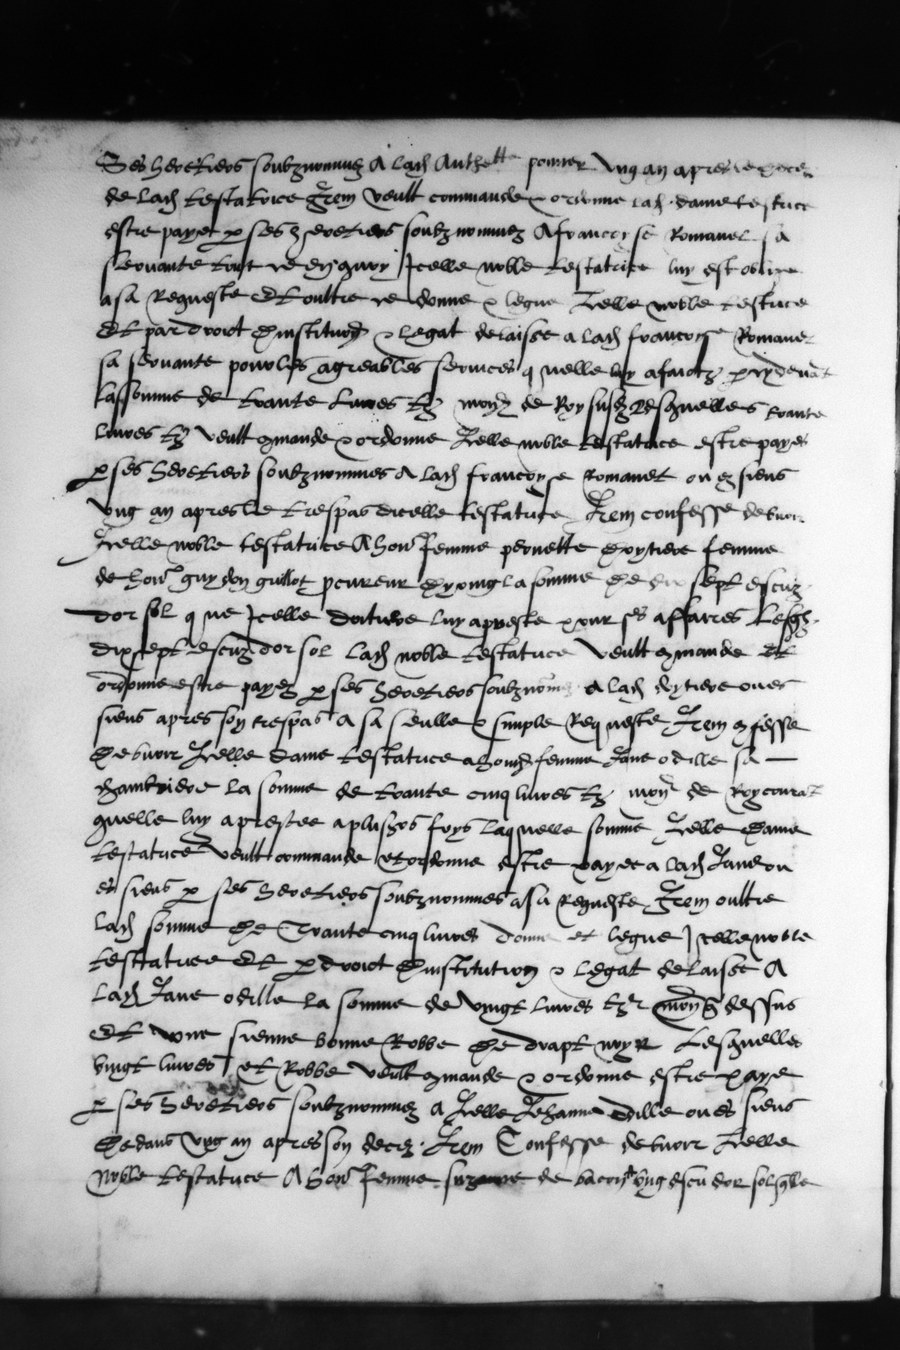 Ses heretiers soubznommez A lad Anthe pomier ung an apres
de lad testatrice Item veult commande et ordonne lad dame testrice
estre paye p ses heretiers soubznommez A francoyse Romanet sa
servante tout ce en quoy Icelle noble testatrice luy est
a sa Requeste Et oultre ce donne & legue Icelle noble testrice
Et par droict dinstitution & legat delaisse a lad francoyse Romanet
sa servante pour les agreables services q uelle luy a faictz p cy devat
la somme de trante livres tz mon de Roy susd Desquelles trante
livres tz veult commande & ordonne Icelle noble testatrice estre payes
p ses heretiers soubznommes A lad francoyse Romanet ou es siens
ung an apres le trespas dicelle testatrice Item confesse debvoir
Icelle noble testatrice A hon femme pernette doytiere femme
de hon guydon guillot pcureur la somme de dix sept escuz
dor sol q ue Icelle luy a preste pour ses affaires Lesqlz
dix sept escuz dor sol lad noble testatrice veult commande et
ordonne estre payez p ses heretiers soubznommez a lad ou es
siens apres son trespas A sa seulle & simple Requeste Item confesse
de bvoir Icelle dame testatrice a hon femme Jane odille sa
chambriere la somme de trante cinq livres tz mon de Roy courat
quelle luy a prestee a plusrs foys laquelle somme Icelle dame
testatrice veult commande et ordonne estre payee a lad Jane ou
es siens p ses heretiers soubznommes a sa Requeste Item oultre
lad somme de trante cinq livres donne et legue Icelle noble
testatrice Et p droict dinstitution & legat delaisse A
lad Jane odille la somme de vingt livres tz mon q dessus
Et une sienne bonne Robbe de drapt noyr Lesquelles
vingt livres et Robbe veult commande & ordonne estre paye
p ses heretiers soubznommez A Icelle Jehanne odille ou es siens
dedans ung an apres son decez Item Confesse debvoir Icelle
Noble testatrice A hon femme suzanne de ung escu dor sol qlle